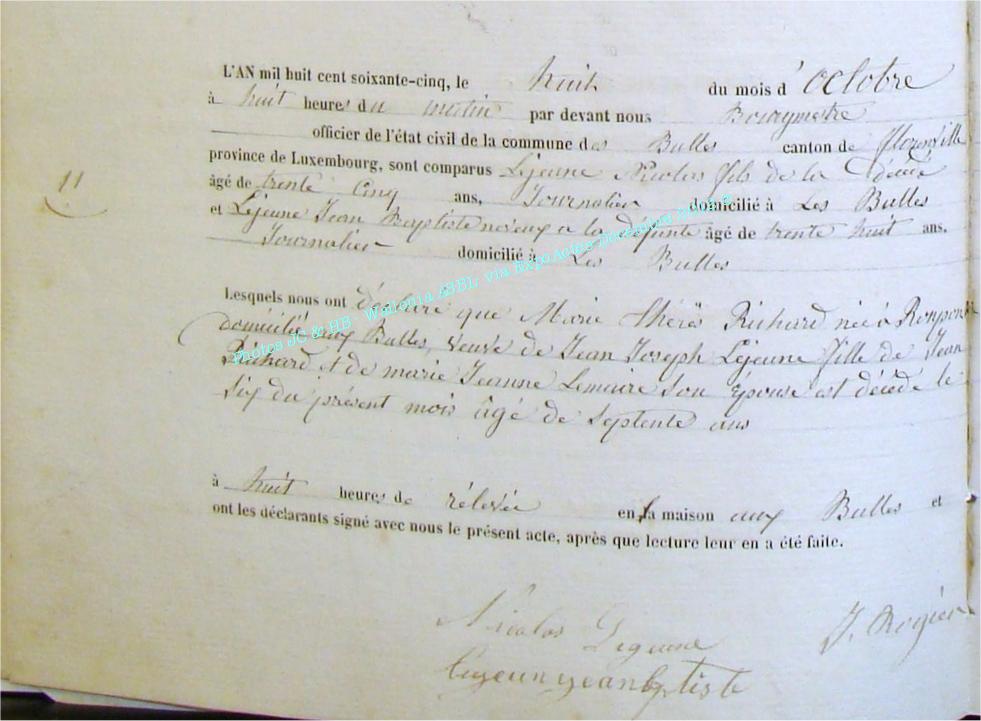 L'AN mil huit cent soixante-cinq, le huit du mois d'Octobre
à huit heures du matin par devant nous Bourgmestre
officier de l'état civil de la commune des Bulles canton de florenville
province de Luxembourg, sont comparus Lejeune Nicolas fils de la décéd
11
âgé de trente cinq ans, Journalier domicilié à Les Bulles
et Lejeune Jean Baptiste neveux a la défunte âgé de trente huit ans.
Journalier domicilié à Les Bulles
Lesquels nous ont déclaré que Marie Thérès Richard née à
domicilié aux Bulles, veuve de Jean Joseph Lejeune fille de Jean
Richard et de marie Jeanne Lemaire son épouse est décédé le
six du présent mois âgé de septente ans
à huit heures de rélevée en la maison aux Bulles et
ont les déclarants signé avec nous le présent acte, après que lecture leur en a été faite.
Nicolas Legeune
J. Rogier
Legeun jeanbptiste
Photos JC & HB - Wallonia ASBL; via ExpoActes Décembre